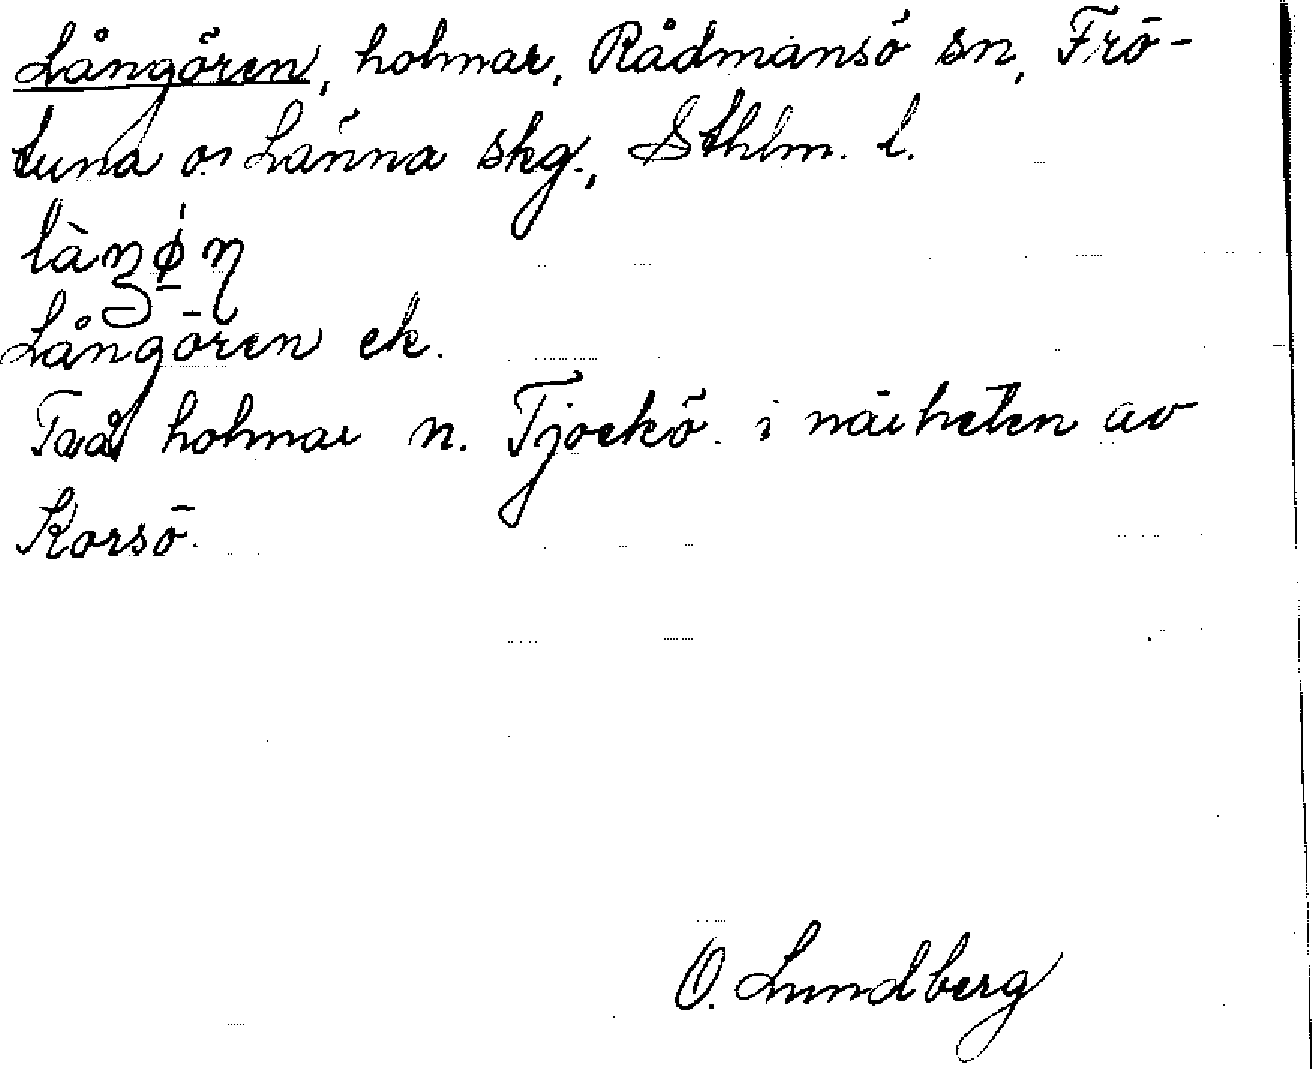 Långören, holmar, Rådmansö sn, Frö-
tuna o. Länna skg., Sthlm. l.
Långören ek.
Två holmar n. Tjockö i närheten av
Korsö.
O. Lundberg